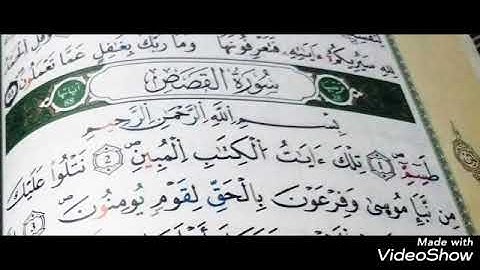 لِلَّهِ سَيُرِيكُمْ ءَايَٰتِهِۦ فَتَعْرِفُونَهَا وَمَا رَبُّكَ بِغَٰفِلٍ عَمَّا تَعْمَلُونَ
سُورَةُ القَصَصِ
آيَاتُهَا ٨٨
بِسْمِ اللَّهِ الرَّحْمَٰنِ الرَّحِيمِ
طسٓمٓ ١ تِلْكَ ءَايَٰتُ الْكِتَٰبِ الْمُبِينِ ٢ نَتْلُوا۟ عَلَيْكَ
مِن نَّبَإِ مُوسَىٰ وَفِرْعَوْنَ بِالْحَقِّ لِقَوْمٍ يُؤْمِنُونَ ٣
Made with
VideoShow